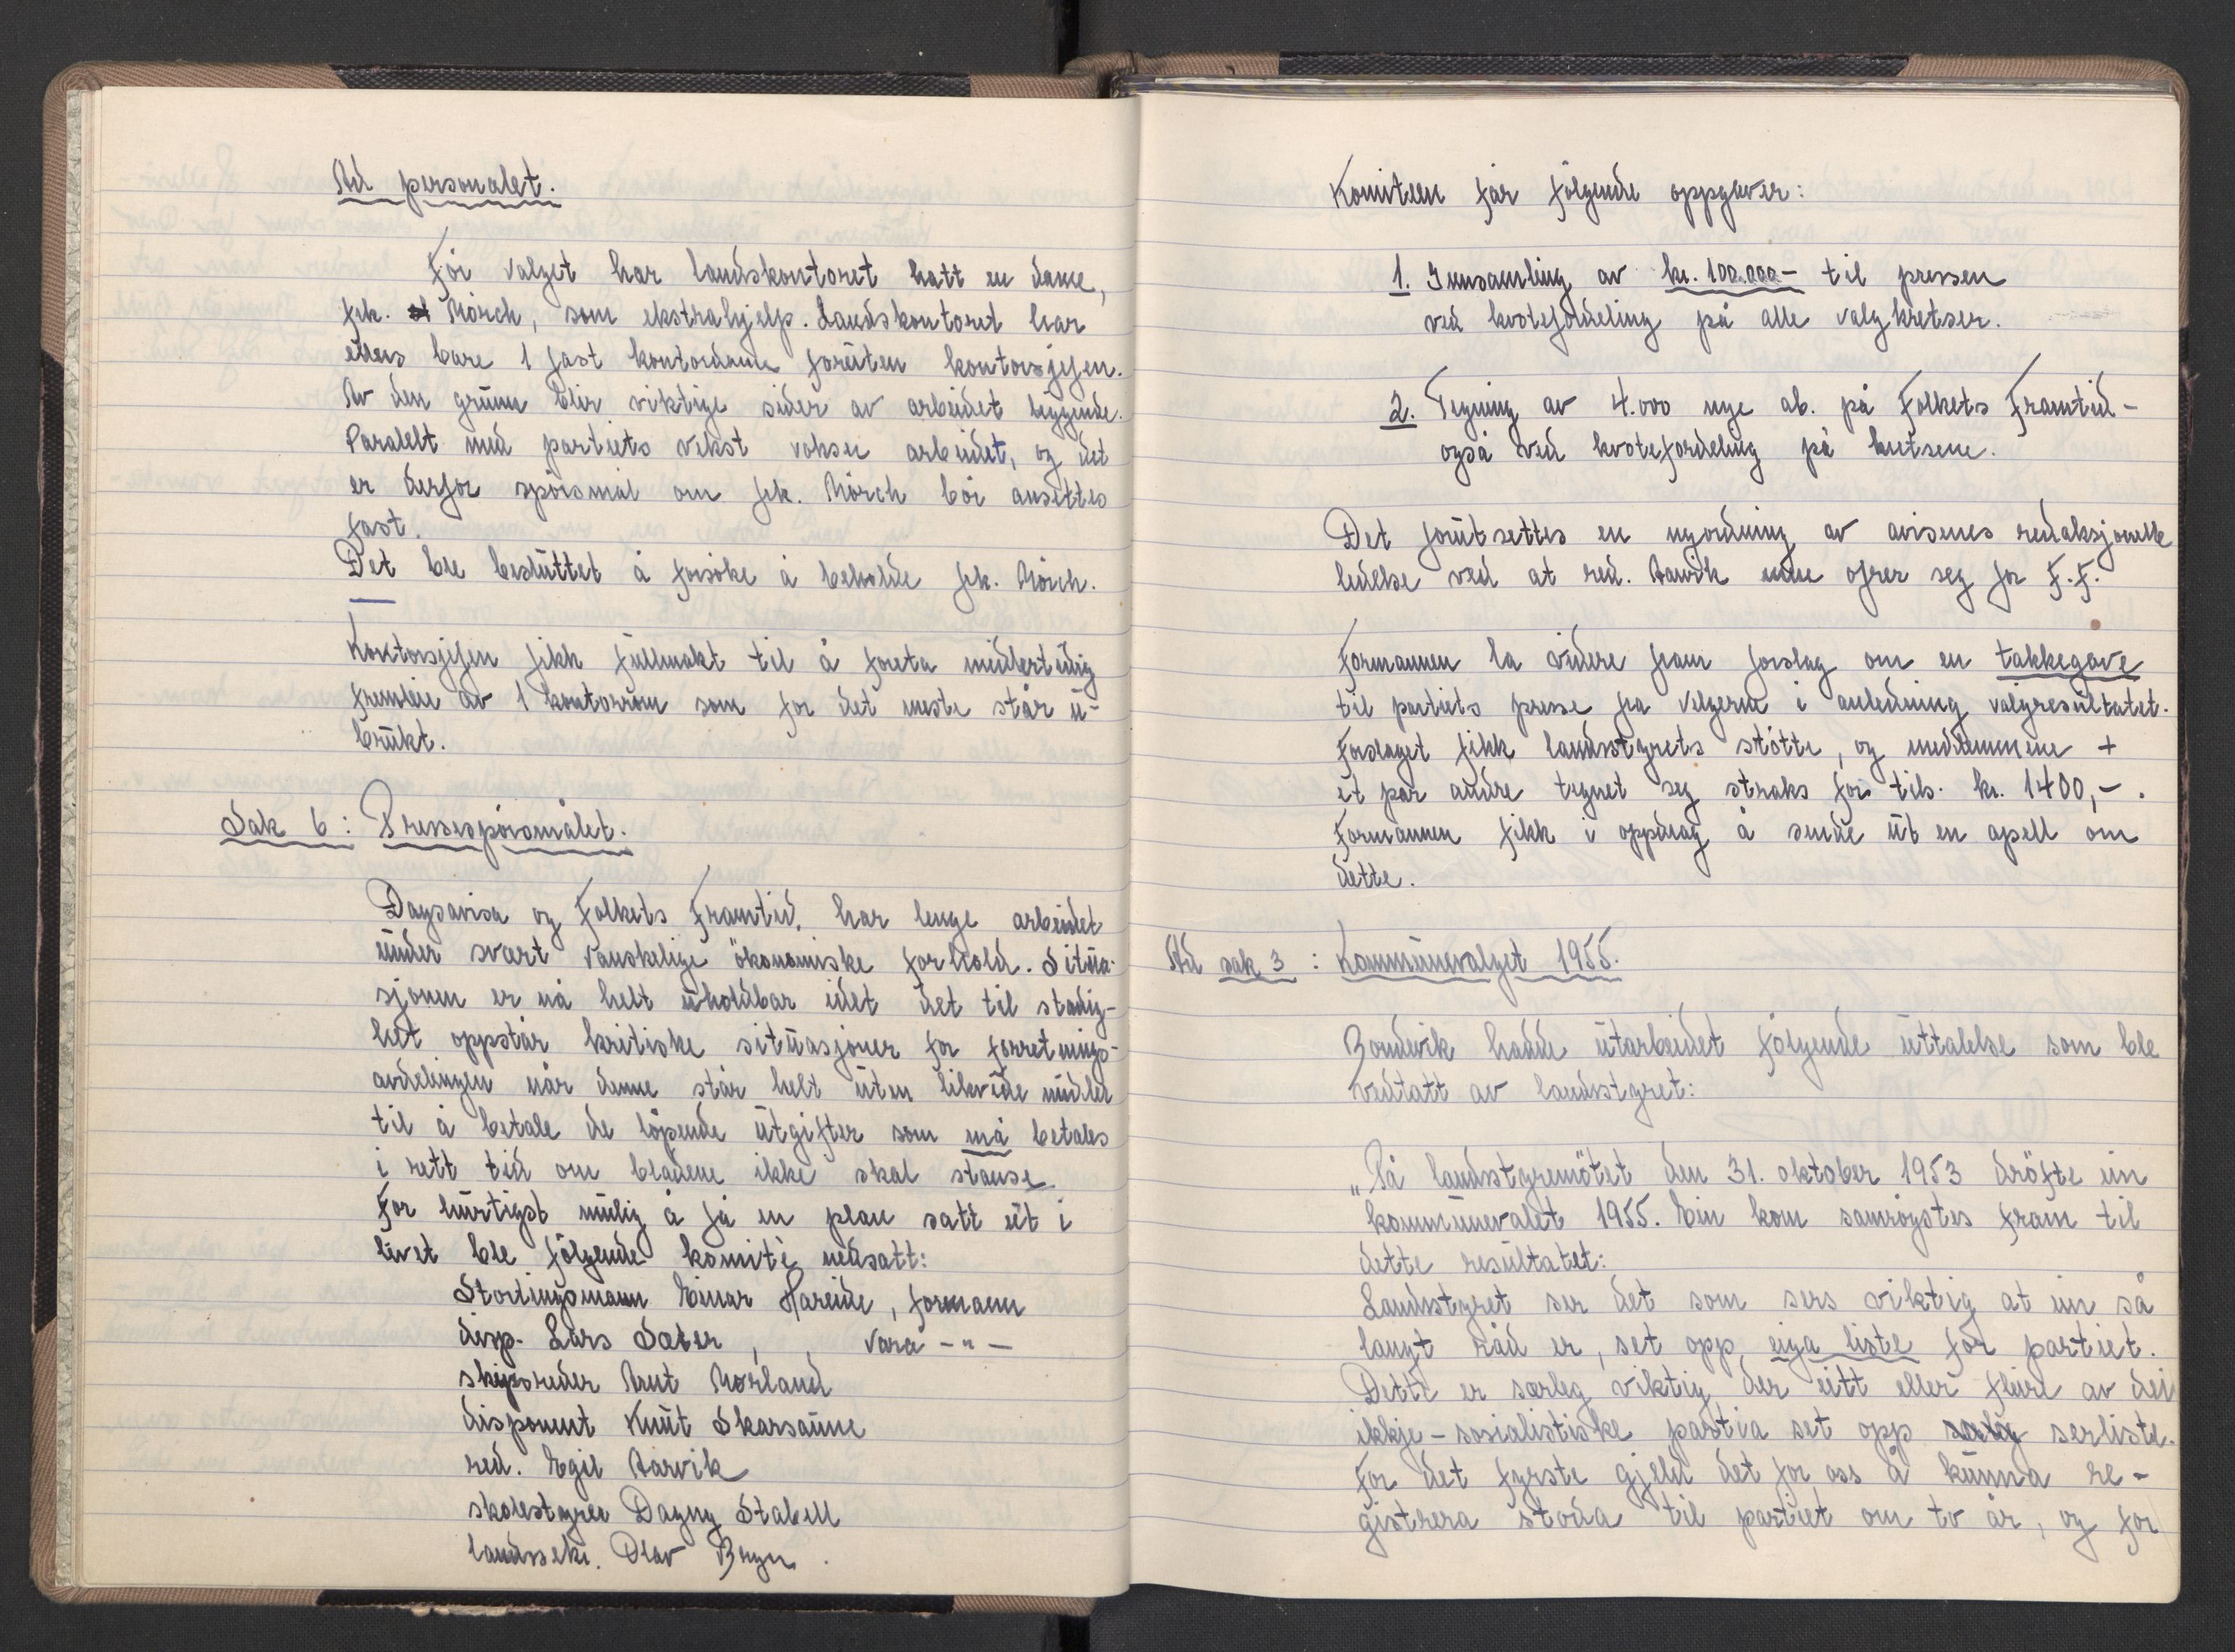 Ad personalet.
För valget har landskontoret hatt en dame,
frk. Mörch, som ekstrahjelp. Landskontoret har
ellers bare 1 fast kontordame foruten kontorsjefen.
Av den grunn blir viktige sider av arbeidet liggende.
Paralelt med partiets vekst vokser arbeidet, og det
er derfor spörsmål om frk. Mörch bör ansettes
fast.
Det ble besluttet å forsöke å beholde frk. Mörch.
Kontorsjefen fikk fullmakt til å foreta midlertidig
fremleie av 1 kontorrom som for det meste står u-
brukt.
Sak 6: Pressespörsmålet.
Dagsavisa og Folkets Framtid, har lenge arbeidet
under svært vanskelige ökonomiske forhold. Situa-
sjonen er nå helt uholdbar idet det til stadig-
het oppstår kritiske situasjoner for forretnings-
avdelingen når denne står helt uten likvide midler
til å betale de löpende utgifter som må betales
i rett tid om bladene ikke skal stanse.
For hurtigst mulig å få en plan satt ut i
livet ble fölgende komitè nedsatt:
Stortingsmann Einar Hareide, formann
disp. Lars Sæter, vara -"-
skipsreder Arnt Mørland
disponent Knut Skarsaune
red. Egil Aarvik
skolestyrer Dagny Stabell
landssekr. Olav Bryn.
Komiteen får fölgende oppgaver:
1. Innsamling av kr. 100.000- til pressen
ved kvotefordeling på alle valgkretser.
2. Tegning av 4.000 nye ab. på Folkets Framtid -
også ved kvotefordeling på kretsene.
Det forutsettes en nyordning av avisenes redaksjonelle
ledelse ved at red. Aarvik mere ofrer seg for F.F.
Formannen la videre fram forslag om en takkegave
til partiets presse fra velgerne i anledning valgresultatet.
Forslaget fikk landsstyrets stötte, og medlemmene +
et par andre tegnet seg straks for tils. kr. 1400,-.
Formannen fikk i oppdrag å sende ut en apell om
dette.
Ad sak 3: Kommunevalget 1955.
Bondevik hadde utarbeidet fölgende uttalelse som ble
vedtatt av landsstyret:
„På landsstyremötet den 31. oktober 1953 dröfte ein
kommunevalet 1955. Ein kom samröystes fram til
dette resultatet:
Landsstyret ser det som sers viktig at ein så
langt råd er, set opp eiga liste for partiet.
Dette er særleg viktig der eitt eller fleire av dei
ikkje-sosialistiske partia set opp serliste.
For det fyrste gjeld det for oss å kunna re-
gistrera stoda til partiet om tv år, og for